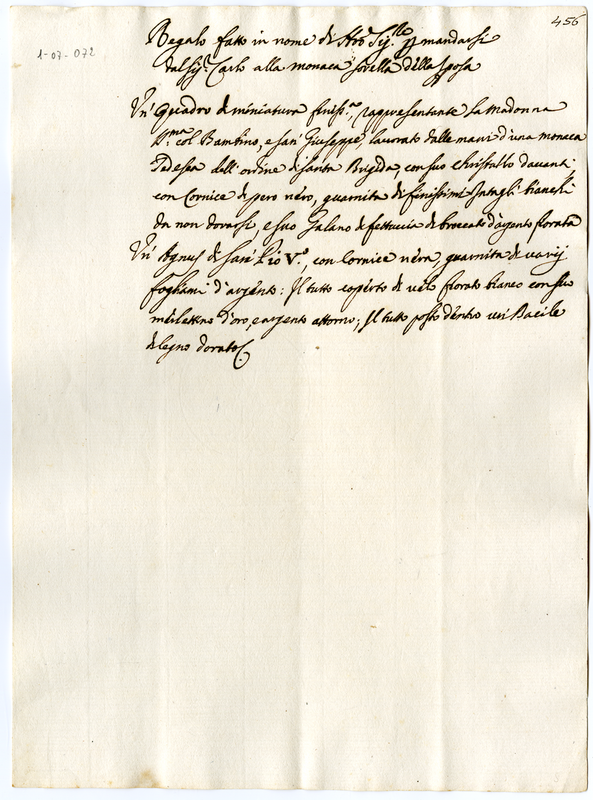 456
1-07-072
Regalo fatto in nome di Sig.re p mandarsi
dal Sig.r Carlo alla monaca sorella della sposa
Un' quadro di miniatura finiss.mo rappresentante La Madonna
S.ma col Bambino, e san Giuseppe, lavorato dalle mani d'una monaca
Tedesca dell'ordine di santa Brigida, con suo christallo davanti
con Cornice di pero néro, guarnita di finissimi Intagli bianchi p
da non dorarsi, e suo Galano di fettuccia di broccato d'argento fiorata
Un' Agnus di San' Pio V.o, con Cornice néra, guarnita di varij
fogliami d'argento: Il tutto coperto di velo fiorato bianco con suo
merlettino d'oro, e argento attorno; Il tutto posto dentro un Bacile
di legno dorato